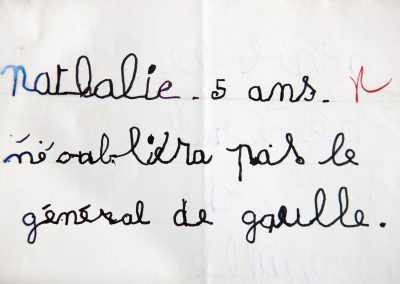 Nathalie. 5 ans. n
n'éoubliera pas le
général de gaulle.